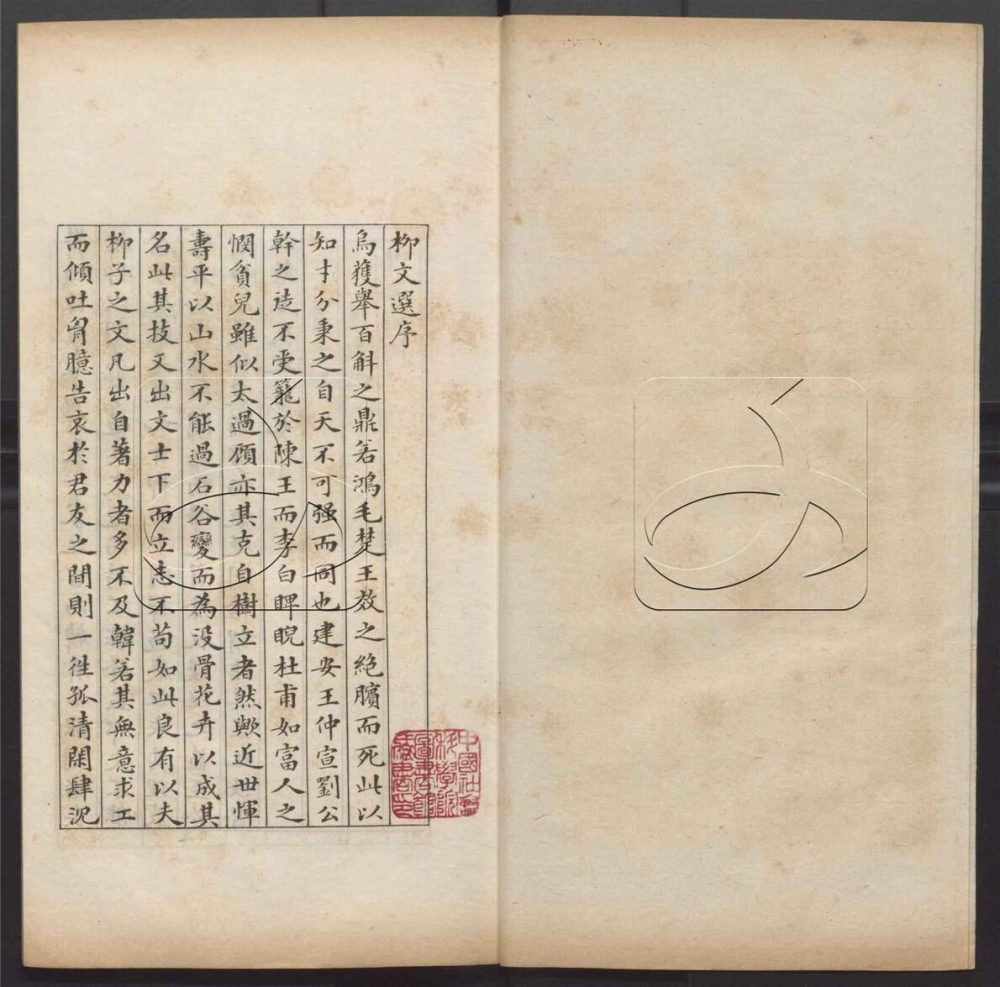 柳文選序
烏獲舉百斛之鼎若鴻毛楚王效之絕臏而死此以
知才分秉之自天不可强而同也建安王仲宣劉公
幹之徒不受籠於陳王而李白睥睨杜甫如富人之
憫貧兒雖似太過顧亦其克自樹立者然歟近世惲
壽平以山水不能過石谷變而為没骨花卉以成其
名此其技又出文士下而立志不苟如此良有以夫
柳子之文凡出自著力者多不及韓若其無意求工
而傾吐胷臆告哀於君友之間則一往孤清閎肆沉
中國社會
科學院
圖書館
藏書印